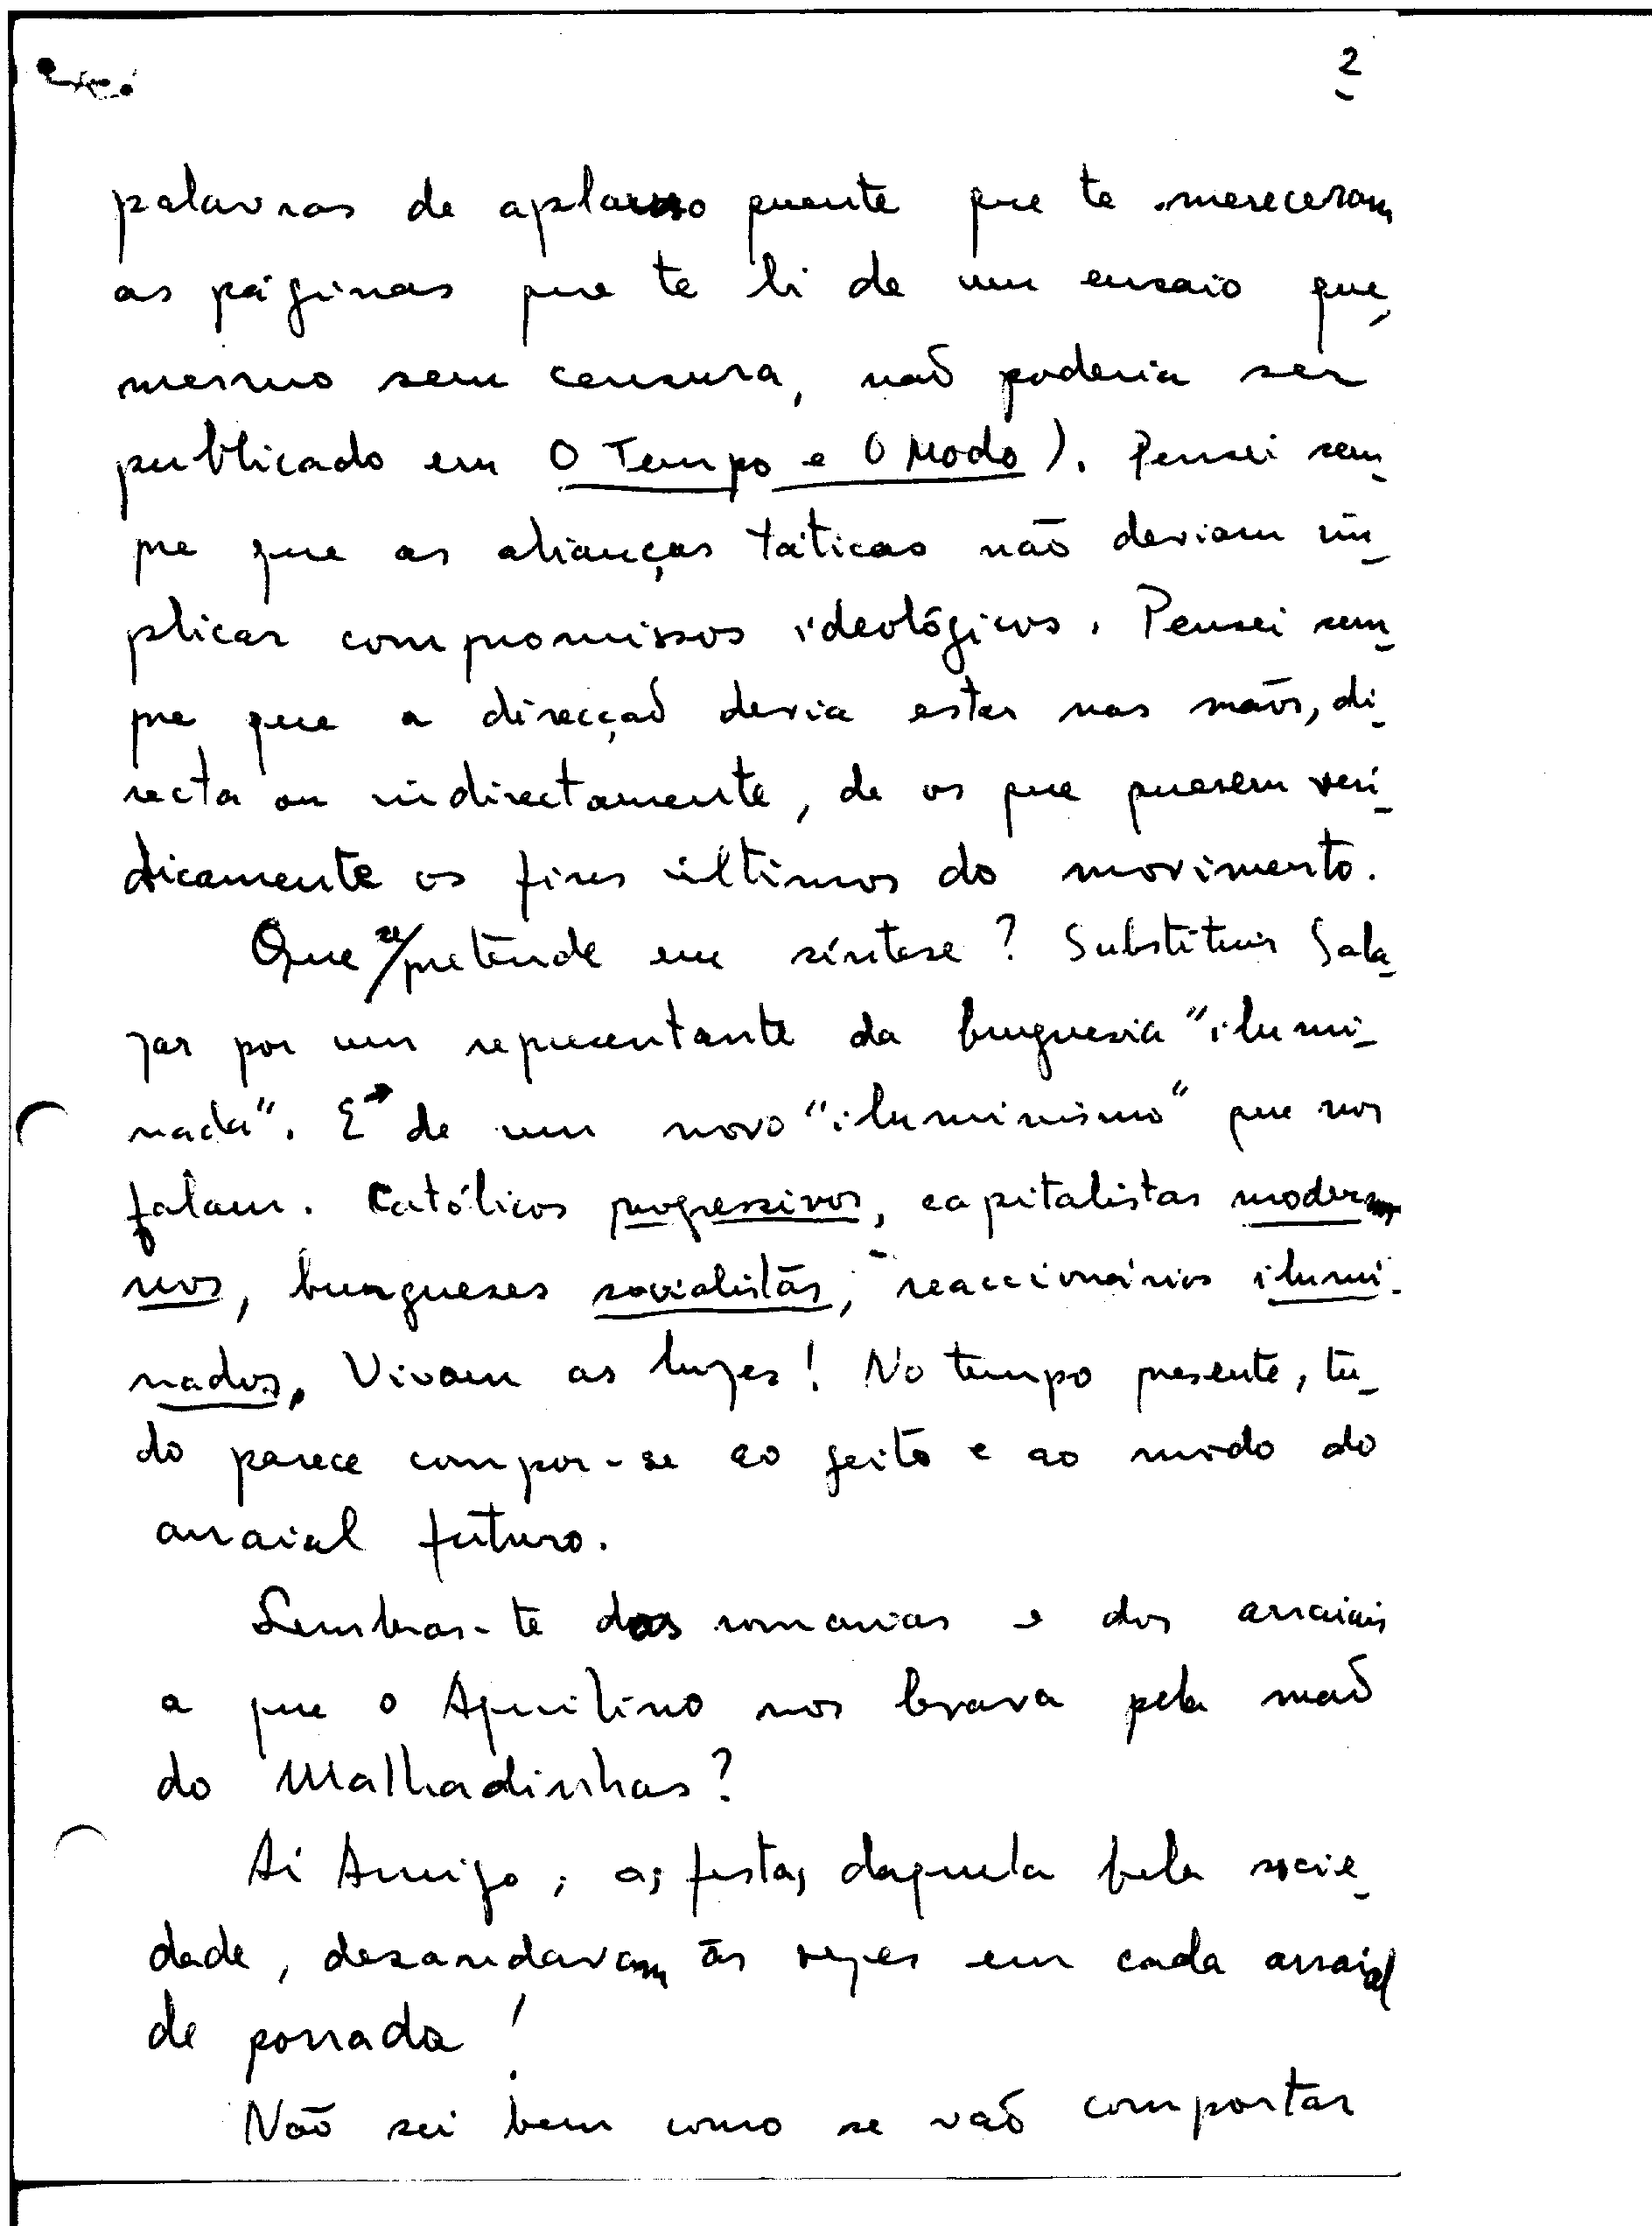 2
palavras de aplauso quente que te mereceram
as páginas que te li de um ensaio que,
mesmo sem censura, não poderia ser
publicado em O Tempo e O Modo). Pensei sem-
pre que as alianças táticas não deviam im-
plicar compromissos ideológicos. Pensei sem-
pre que a direcção devia estar nas mãos, di-
recta ou indirectamente, de os que querem veri-
dicamente os fins últimos do movimento.
Que se pretende em síntese? Substituir Sala-
zar por um representante da burguesia "ilumi-
nada". E de um novo "iluminismo" que nos
falam. Católicos progressivos, capitalistas moder-
nos, burgueses socialistas, reaccionários ilumi-
nados. Vivam as luzes! No tempo presente, tu-
do parece compor-se ao jeito e ao modo do
arraial futuro.
Lembras-te das romarias e dos arraiais
a que o Aquilino nos levava pela mão
do Malhadinhas?
Ai Amigo, as festas daquela bela socie-
dade, desandavam às vezes em cada arraial
de porrada!
Não sei bem como se vão comportar